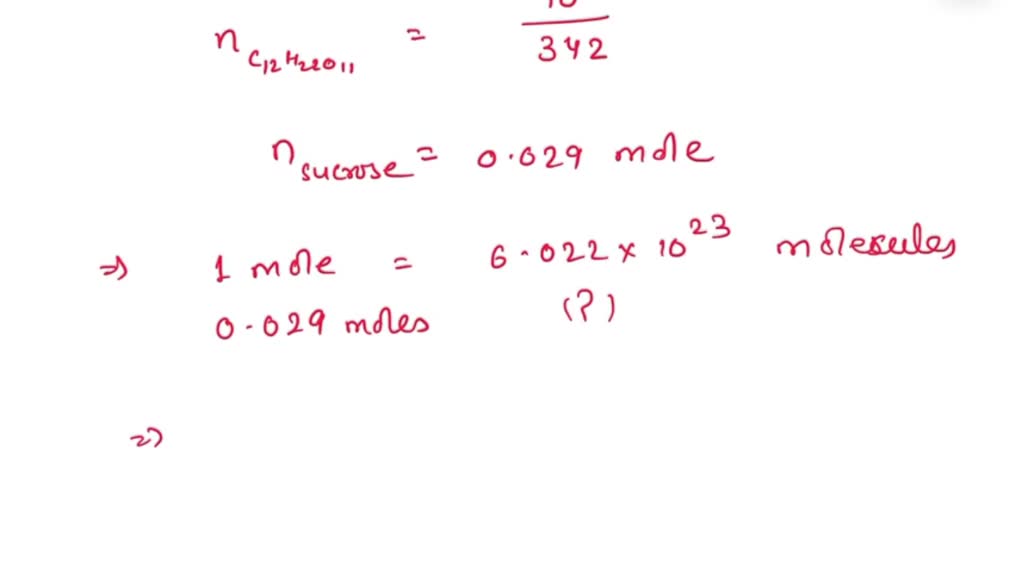 n C12H22O11 = 10/342
n sucrose = 0.029 mole
=> 1 mole = 6.022 x 10^23 molecules
0.029 moles (?)
=>